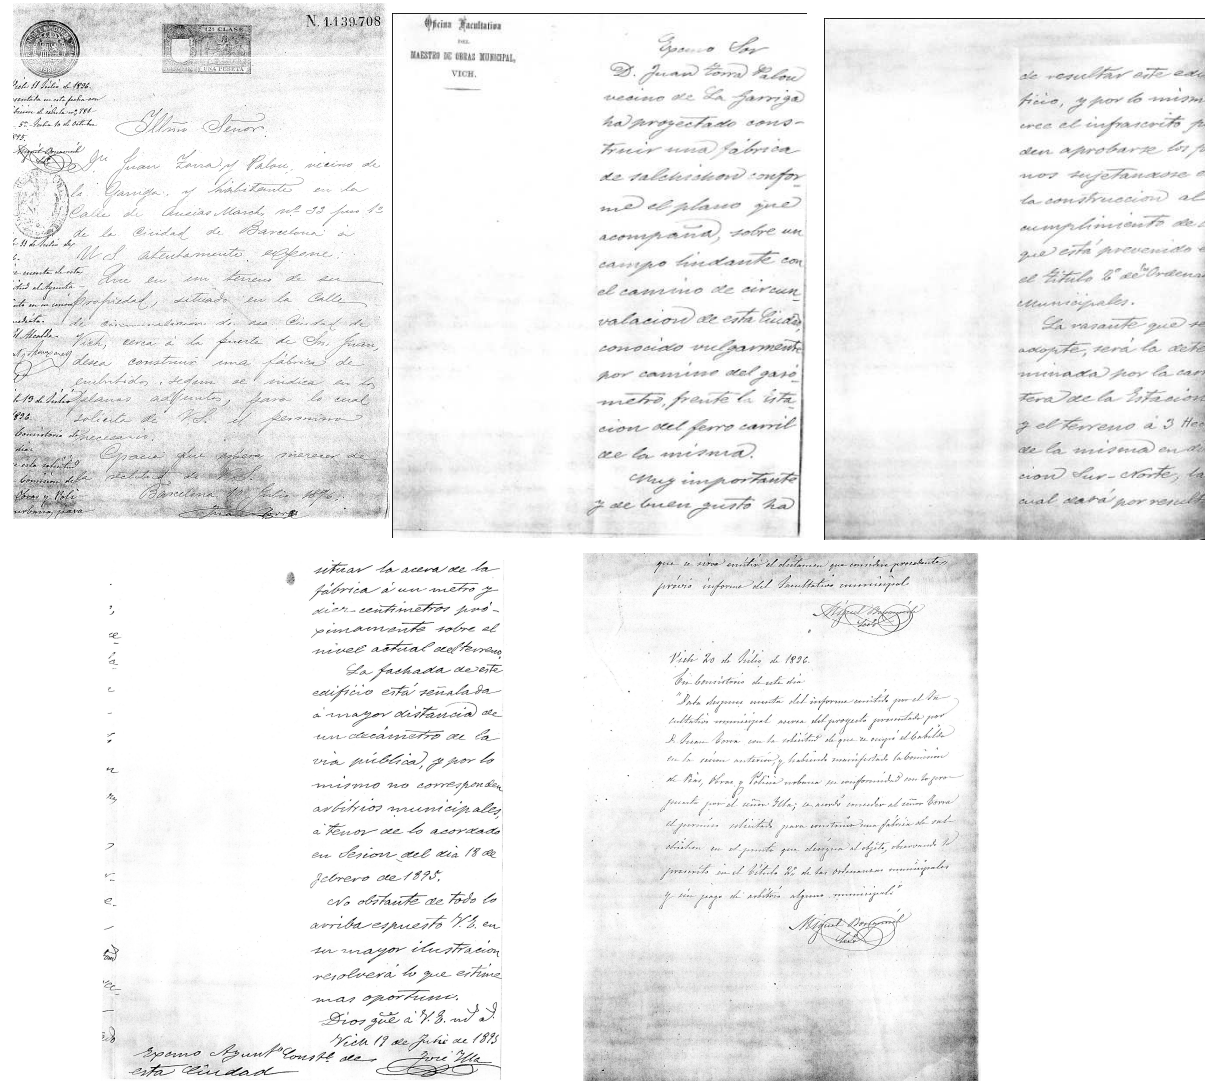 N. 1.139.708
12ª CLASE
UNA PESETA
Illmo Señor.
Dn. Juan Torra y Palou, vecino de
la Garriga y habitante en la
Calle de Ausias March, nº 33 piso 1º
de la Ciudad de Barcelona á
U S atentamente expone:
Que en un terreno de su
propiedad, situado en la Calle
de circunvalacion de esa Ciudad de
Vich, cerca á la puerta de Sn. Juan
desea construir una fábrica de
embutidos, segun se indica en los
planos adjuntos, para lo cual
solicita de V.S. el permiso
necesario.
Gracia que espera merecer de
la rectitud de V.S.
Barcelona Julio 1896.
Juan Torra
Oficina Facultativa
DEL
MAESTRO DE OBRAS MUNICIPAL,
VICH.
Excmo Sor
D. Juan Torra Palou
vecino de La Garriga
ha proyectado cons-
truir una fábrica
de salchichon confor-
me el plano que
acompaña, sobre un
campo lindante con
el camino de circun-
valacion de esta Ciudad,
conocido vulgarmente
por camino del gasó-
metro, frente la esta-
cion del ferro carril
de la misma.
Muy importante
y de buen gusto ha
de resultar este edi
ficio, y por lo mism
cree el infrascrito p
den aprobarse los p
nos sujetandose
la construccion al
cumplimiento de
que está prevenido
el título 2º de las Ordena
Municipales.
La rasante que se
adopte, será la dete
minada por la carr
tera de la Estacion
y el terreno á 3 Hec
de la misma en di
cion Sur-Norte, la
cual dará por result
situar la acera de la
fábrica á un metro y
diez centímetros pró-
ximamente sobre el
nivel actual del terreno.
La fachada de este
edificio está señalada
á mayor distancia de
un decámetro de la
via pública, y por lo
mismo no corresponden
arbitrios municipales,
á tenor de lo acordado
en Sesion del dia 18 de
febrero de 1895.
No obstante de todo lo
arriba espuesto V.E. en
su mayor ilustracion
resolverá lo que estime
mas oportuno.
Dios gúe á V.E. ms. as.
Vich 19 de Julio de 1895
José Illa
Excmo Ayuntº Constl. de
esta Ciudad
que se sirva emitir el dictamen que considere procedente,
prévio informe del Facultativo municipal
Miguel Bonavní
Srio
Vich 20 de Julio de 1896.
En Consistorio de este dia
"Dada despues cuenta del informe emitido por el Fa-
cultativo municipal acerca del proyecto presentado por
D. Juan Torra con la solicitud de que se ocupó el Cabildo
en la sesion anterior, y habiendo manifestado la Comision
de Vias, Obras y Policia urbana su conformidad con lo pro-
puesto por el señor Illa; se acordó conceder al señor Torra
el permiso solicitado para construir una fábrica de sal-
chichon en el punto que designa al objeto, observando lo
prescrito en el Título 2º de las ordenanzas municipales
y sin pago de arbitrio alguno municipal."